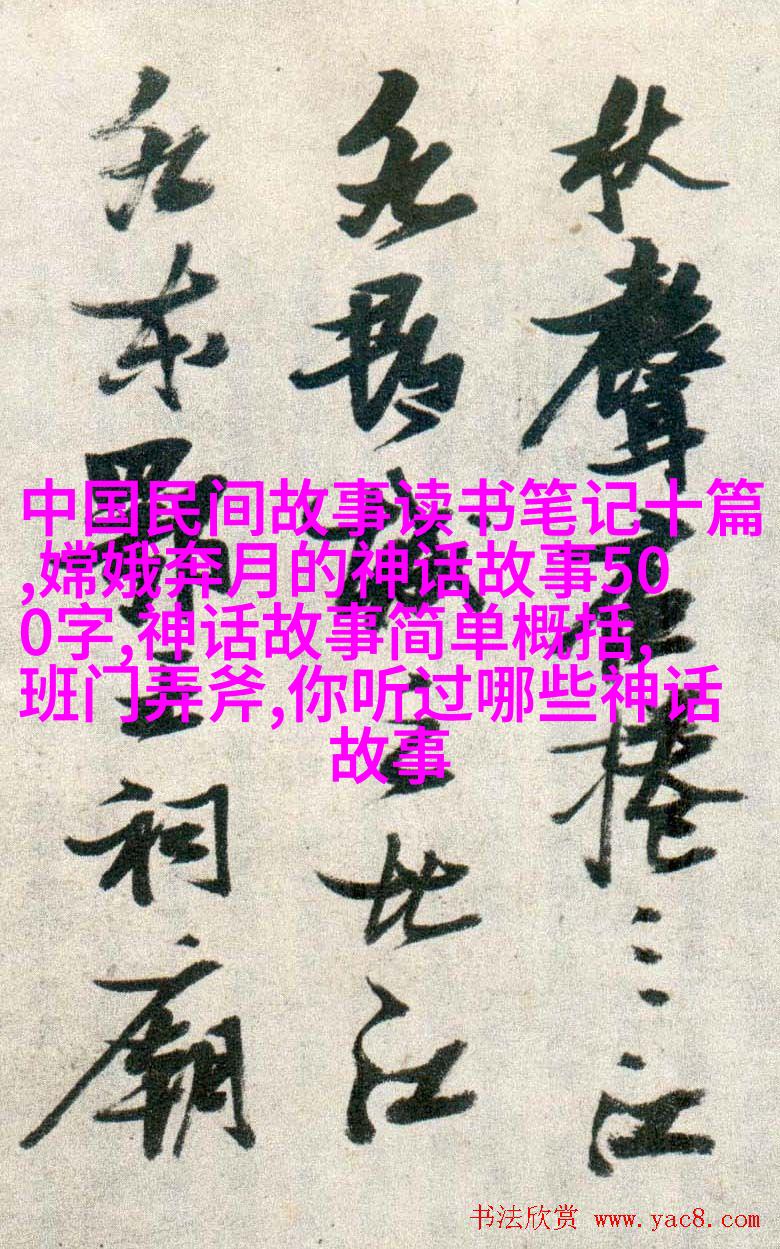 中国民间故事读书笔记十篇
,嫦娥奔月的神话故事50
0字,神话故事简单概括,
班门弄斧,你听过哪些神话
故事
秋聲捲三江
城北江
東王祠廟
书法欣赏 www.yac8.com